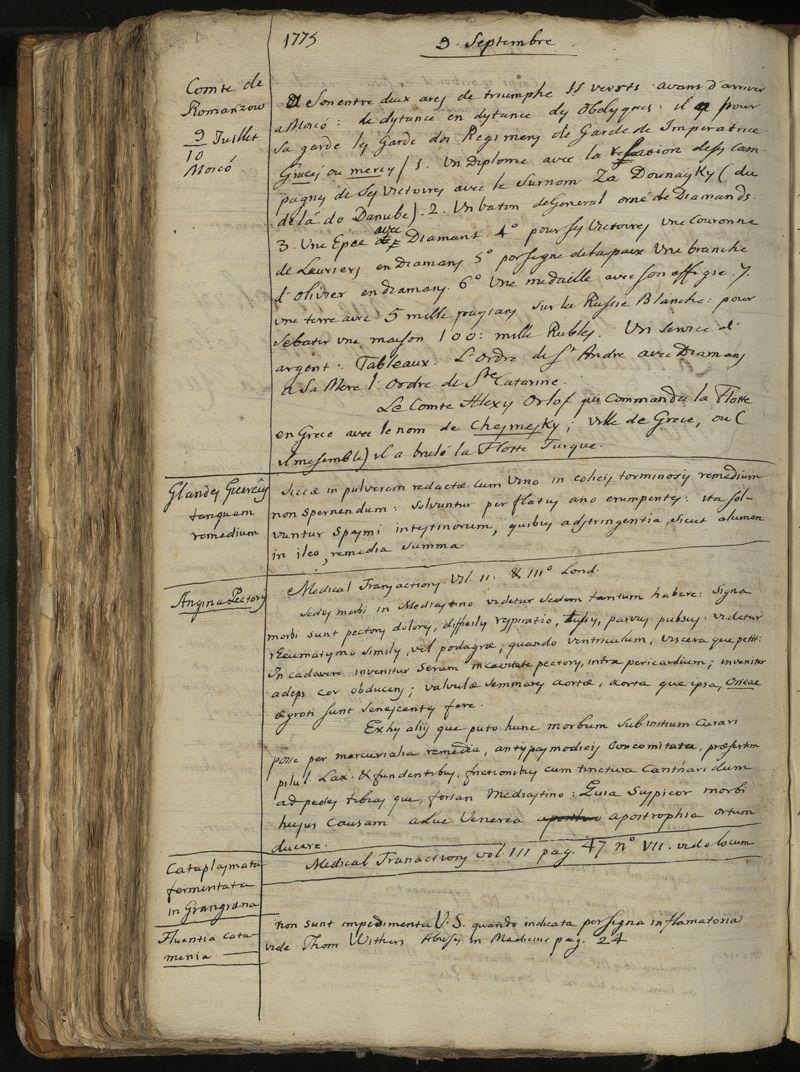 1775
9. Septembre
Comte de
Romanzow
9 Juillet
10
Moscó
Son entre deux arcs de triumphe 15 versts avant d'arriver
a Moscó: de dystance en dystance des Obelysques: il pour
sa garde les Garde dos Regimens de Garde de Imperatrice.
Graces ou mercy / 1. Un Diplome avec la relation de ses Cam-
pagnes de Ses Victoires avec le Surnom Za Dounaysky (du
de lá do Danube). 2. Un baton de General orné de Diamands.
3. Une Epée avec Diamant. 4° pour ses Victoires une Couronne
de Lauriers en Diamans 5° por signe de la paix Une branche
d'Olivier en diamans. 6° Une medaille avec son effigie. 7.
une terre avec 5 mille paysans sur la Russie Blanche: pour
se batir une maison 100: mille Rubles. Un Service d'
argent. Tableaux. L'Ordre de St Andre avec Diamans
a Sa Mere l'Ordre de Ste Catarine.
Le Comte Alexy Orlof qui Commandu la Flotte
en Grece avec le nom de Chesmesky; ville de Grece, ou (
il me semble) il a brulé la Flotte Turque.
Glandes Quercûs
tanquam
remedium
Siccæ in pulverem redactæ cum Vino in colicis torminosis remedium
non spernendum: solvuntur per flatus ano erumpentes: ita sol-
vuntur Spasmi intestinorum, quibus adstringentia, sicut alumen
in ileo, remedia summa
Angina Pectoris
Medical Transactions Vol. II. & III° Lond.
Sedes morbi in Mediastino videtur sedem tantum habere: Signa
morbi sunt pectoris dolores, difficilis respiratio, tussis, parvus pulsus: videtur
rheumatismo similis, vel podagræ, quando ventriculum, viscera que petit:
In cadavere invenitur serum in cavitate pectoris, intra pericardium; invenitur
adeps cor obducens; valvulæ semmares aortæ, aorta que ipsa, Osseae
ægroti sunt senescentes fere.
Ex his aliis que puto hunc morbum sub initium curari
posse per mercurialia remedia, antyspasmodicis concomitata, præsertim
pilul. Lax. & fundentibus, frictionibus cum tinctura Cantharidum
ad pedes tibias que, forsan Mediastino: Quia Suspicor morbi
hujus Causam a Lue Venerea apostrophia ortum
ducere.
Cataplasmata
fermentata
in Grangræna
Medical Transactions vol III pag. 47 n° VII. vide locum
Fluentia Cata-
menia
non sunt impedimenta V. S. quando indicata per signa inflamatoria
vide Thom Withers Abuses in Medicine pag. 24